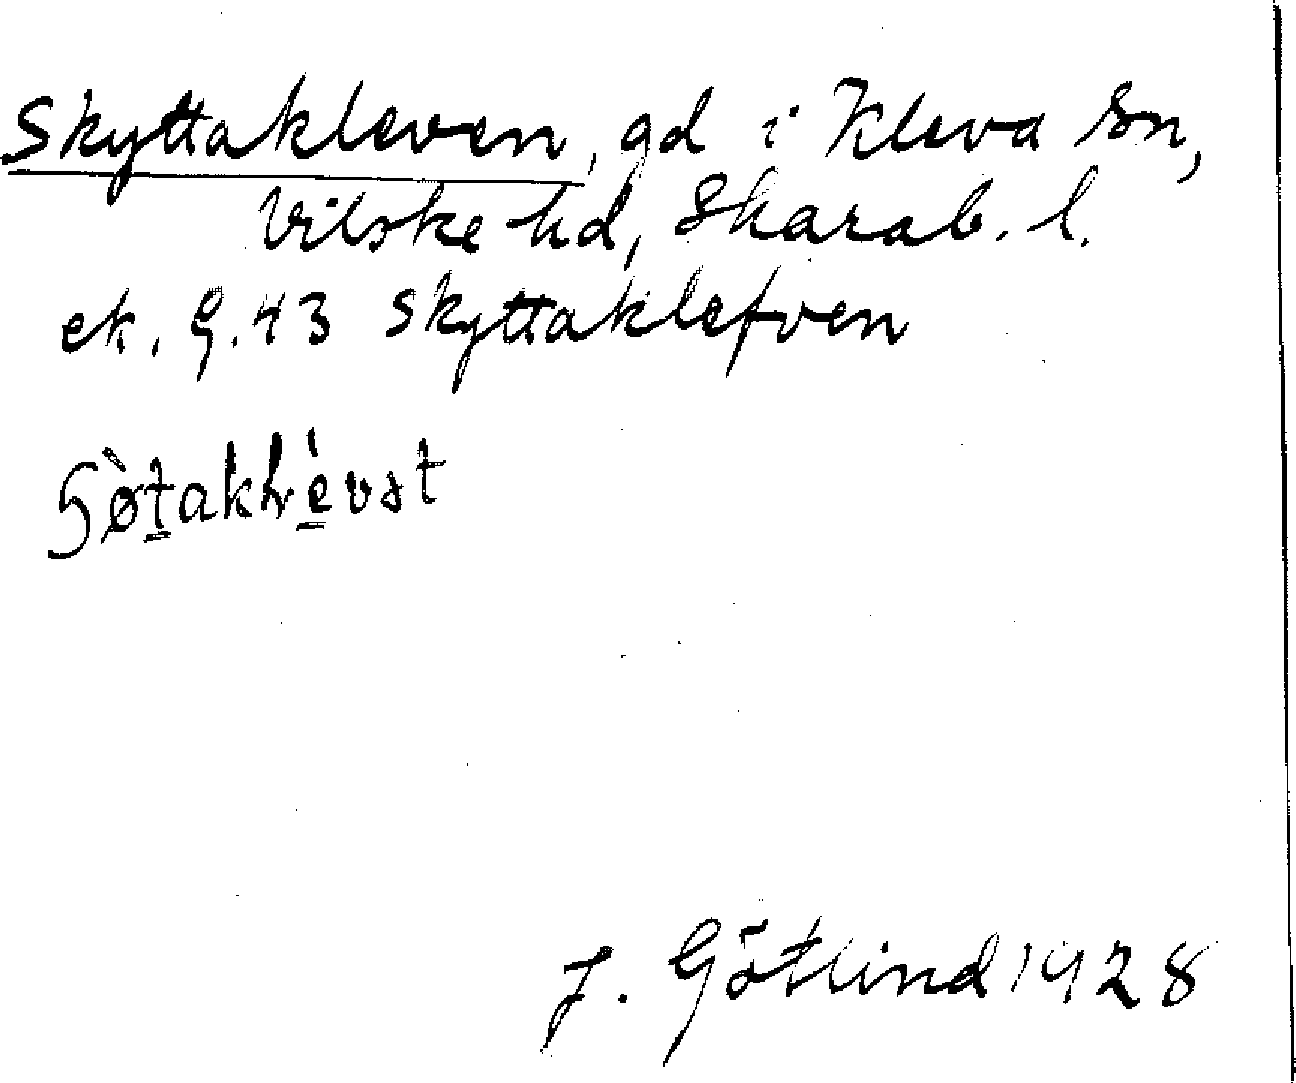 Skyttakleven, gd i Kleva sn,
Vilske hd, Skarab. l.
ek. G. 43 Skyttaklefven
J. Götlind 1928